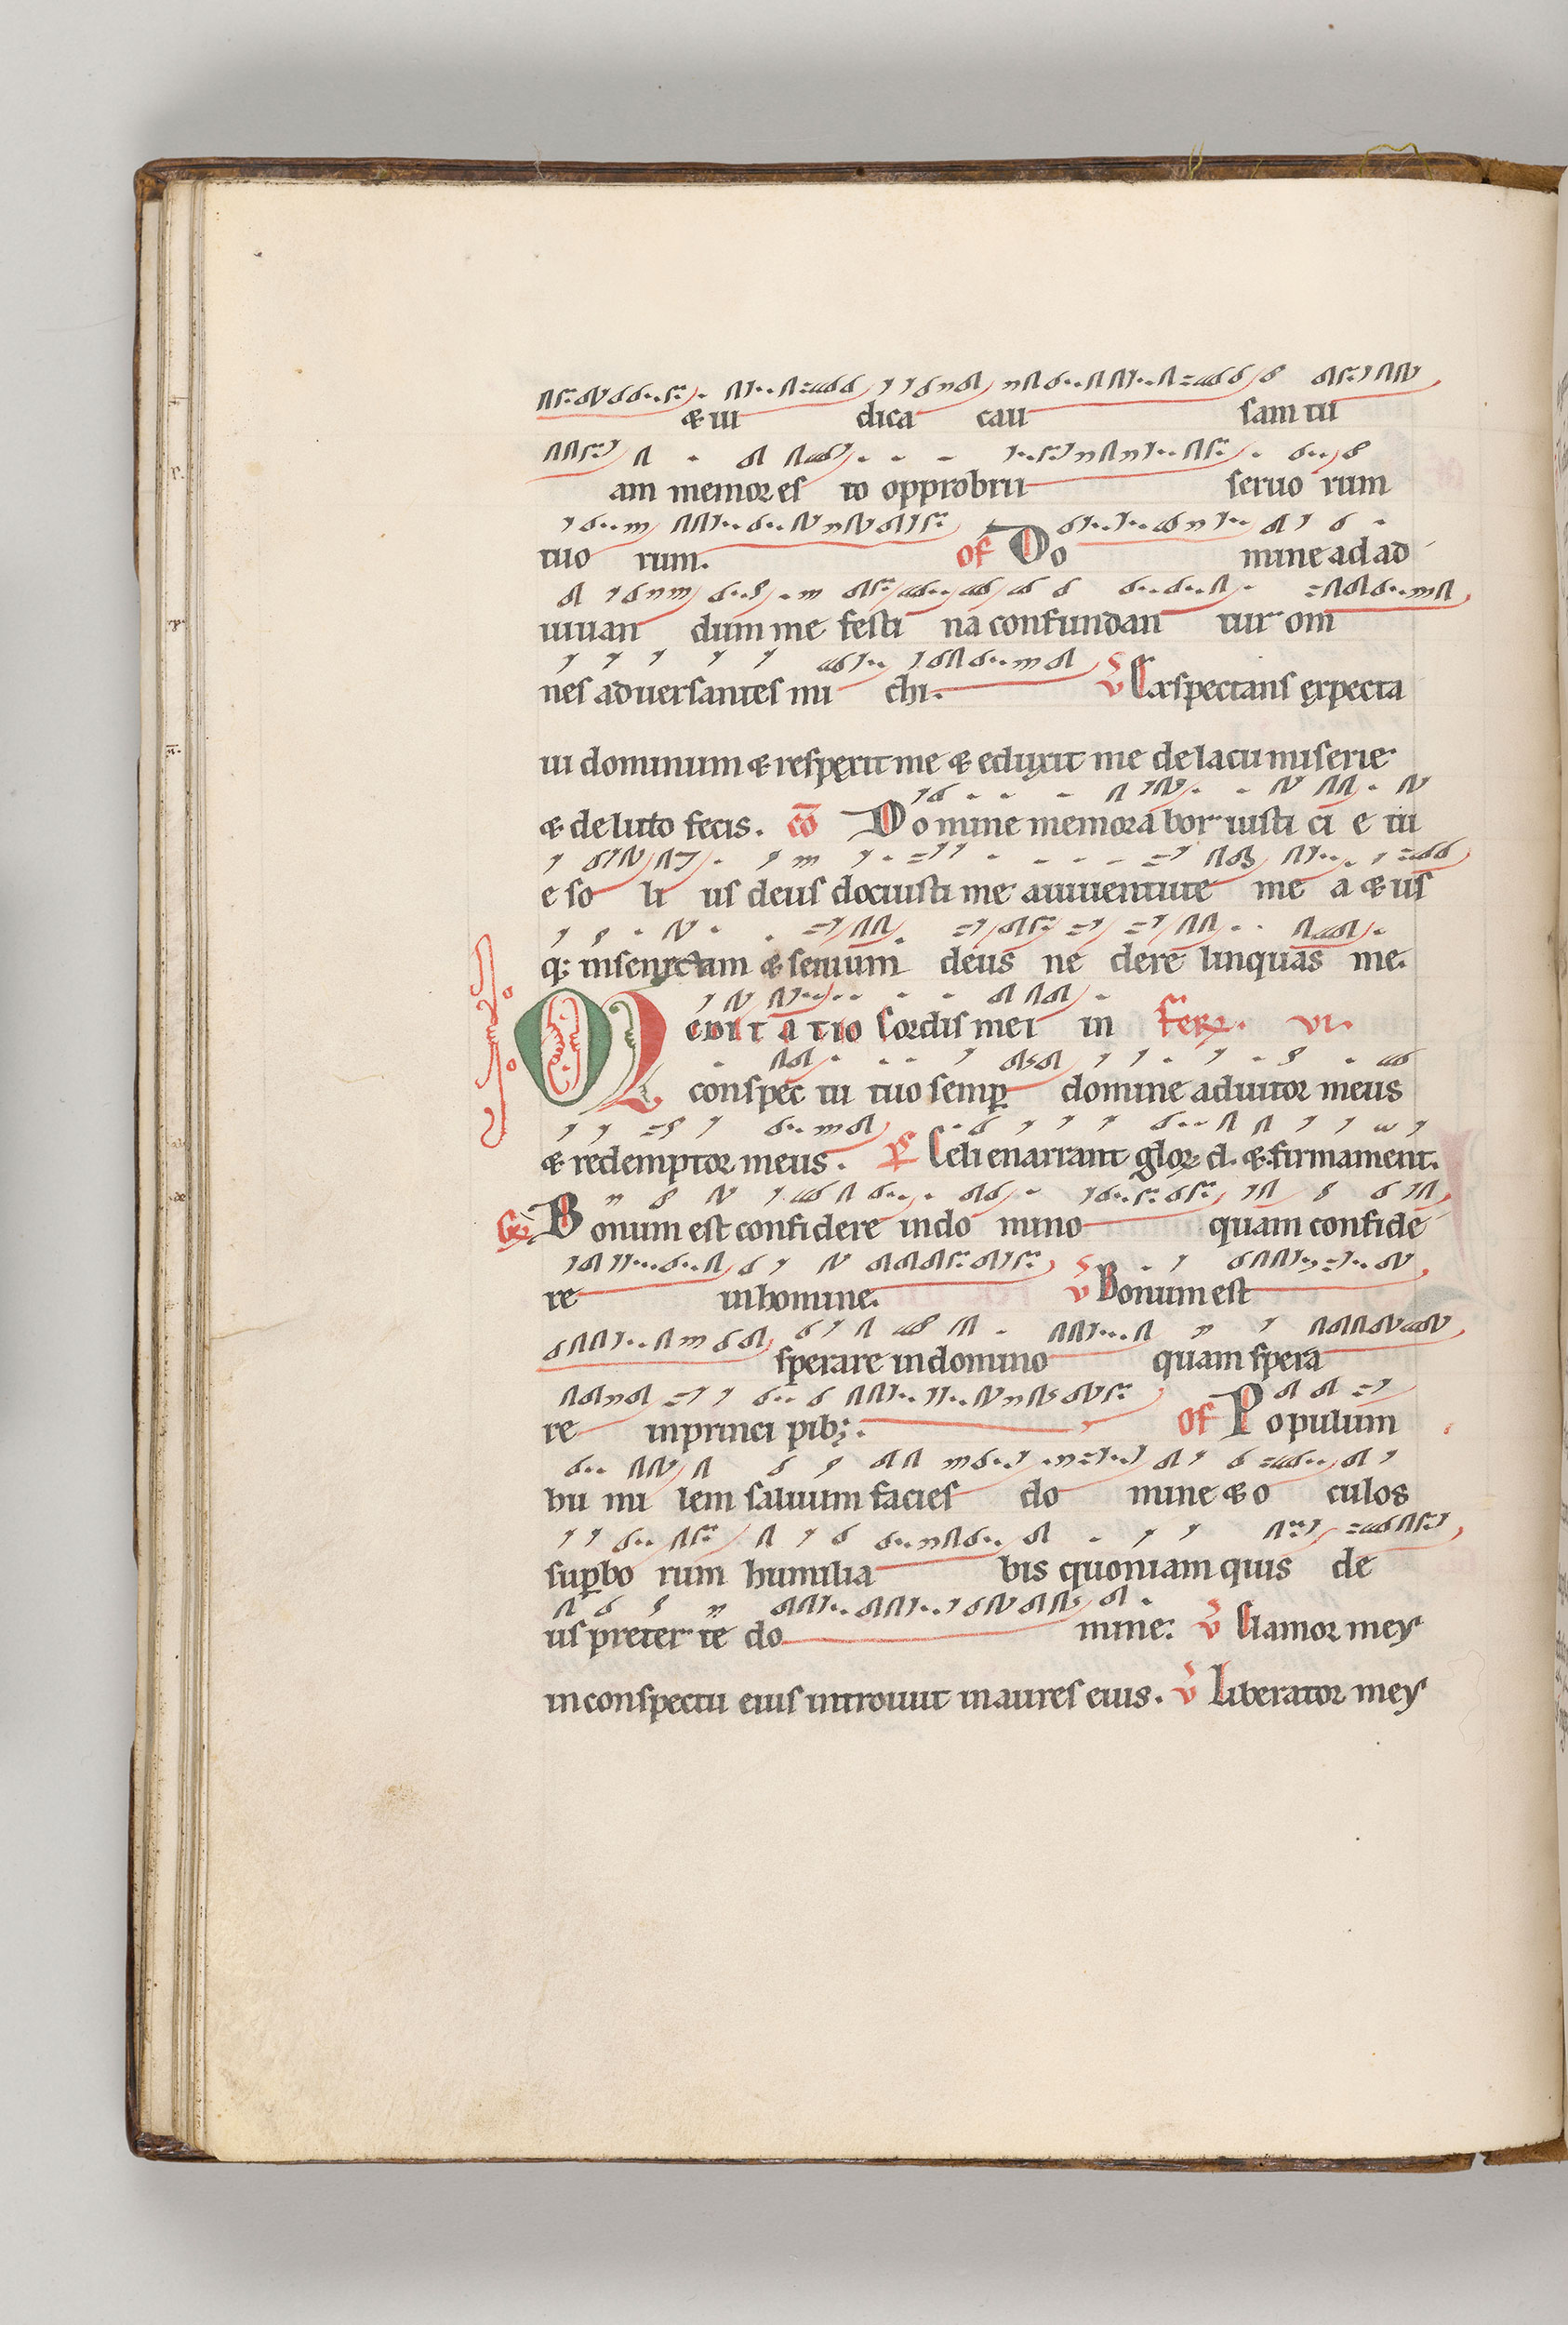 & iu dica cau sam tu
am memor es to opprobrii seruo rum
tuo rum. Of Do mine ad ad
iuuan dum me festi na confundan tur om
nes aduersantes mi chi. v̄ Exspectans expecta
ui dominum & respexit me & eduxit me de lacu miserie
& de luto fecis. c̄o Domine memora bor iusti ci e tu
e so li us deus docuisti me a iuuentute me a & us
q; in senectam & senium deus ne dere linquas me.
Meditatio cordis mei in fer. vi.
conspec tu tuo semp domine adiutor meus
& redemptor meus. Ps Celi enarrant glor d. & firmament.
Gr Bonum est confidere in do mino quam confide
re in homine. v̄ Bonum est
sperare in domino quam spera
re in princi pib;. Of Populum
hu mi lem saluum facies do mine & o culos
supbo rum humilia bis quoniam quis de
us preter te do mine: v̄ Clamor mey
in conspectu eius introiuit in aures eius. v̄ Liberator mey